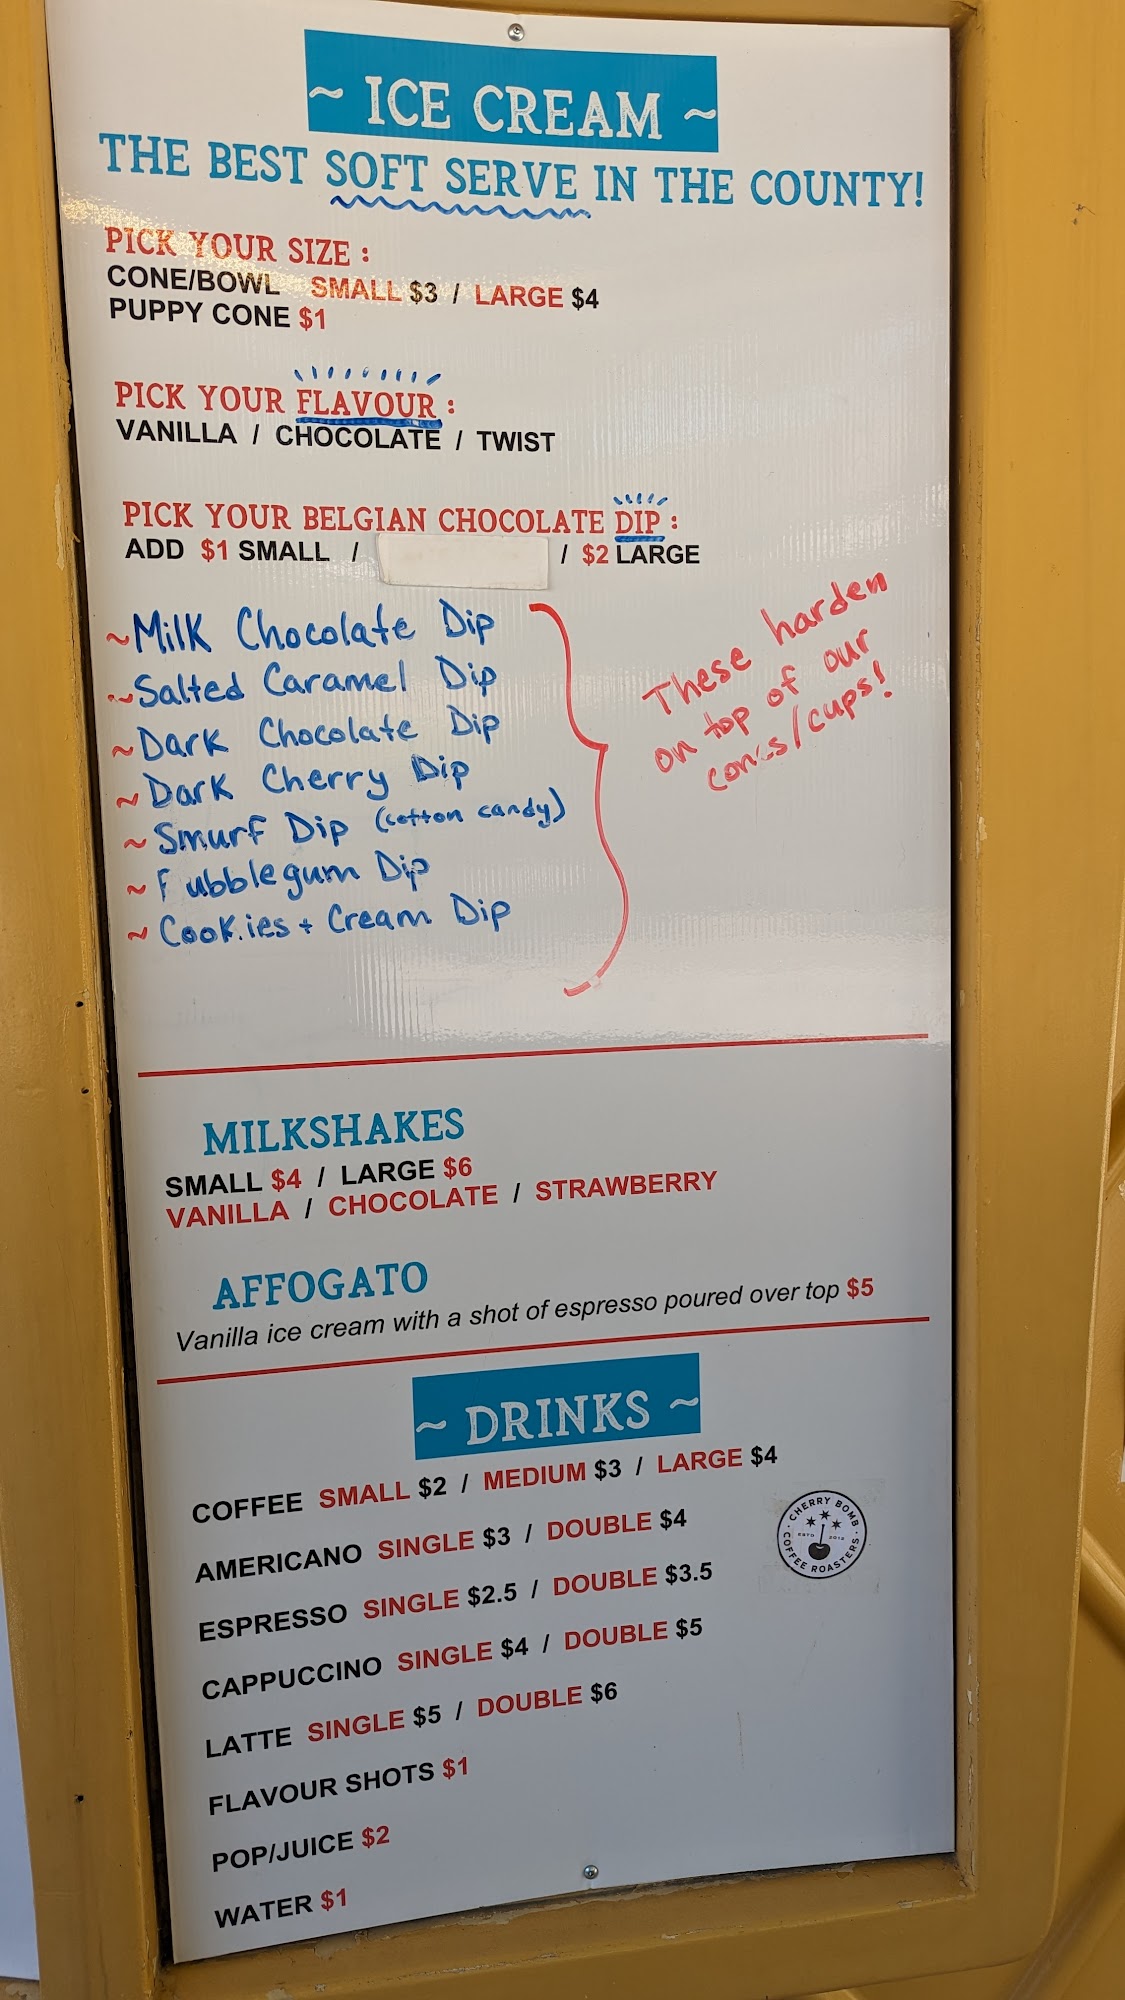 ~ ICE CREAM ~
THE BEST SOFT SERVE IN THE COUNTY!
PICK YOUR SIZE :
CONE/BOWL SMALL $3 / LARGE $4
PUPPY CONE $1
PICK YOUR FLAVOUR :
VANILLA / CHOCOLATE / TWIST
PICK YOUR BELGIAN CHOCOLATE DIP :
ADD $1 SMALL / / $2 LARGE
~Milk Chocolate Dip
~Salted Caramel Dip
~Dark Chocolate Dip
~Dark Cherry Dip
~Smurf Dip (cotton candy)
~Bubblegum Dip
~Cookies + Cream Dip
These harden
on top of our
cones/cups!
MILKSHAKES
SMALL $4 / LARGE $6
VANILLA / CHOCOLATE / STRAWBERRY
AFFOGATO
Vanilla ice cream with a shot of espresso poured over top $5
~ DRINKS ~
COFFEE SMALL $2 / MEDIUM $3 / LARGE $4
AMERICANO SINGLE $3 / DOUBLE $4
ESPRESSO SINGLE $2.5 / DOUBLE $3.5
CAPPUCCINO SINGLE $4 / DOUBLE $5
LATTE SINGLE $5 / DOUBLE $6
FLAVOUR SHOTS $1
POP/JUICE $2
WATER $1
CHERRY BOMB
ESTD 2012
COFFEE ROASTERS